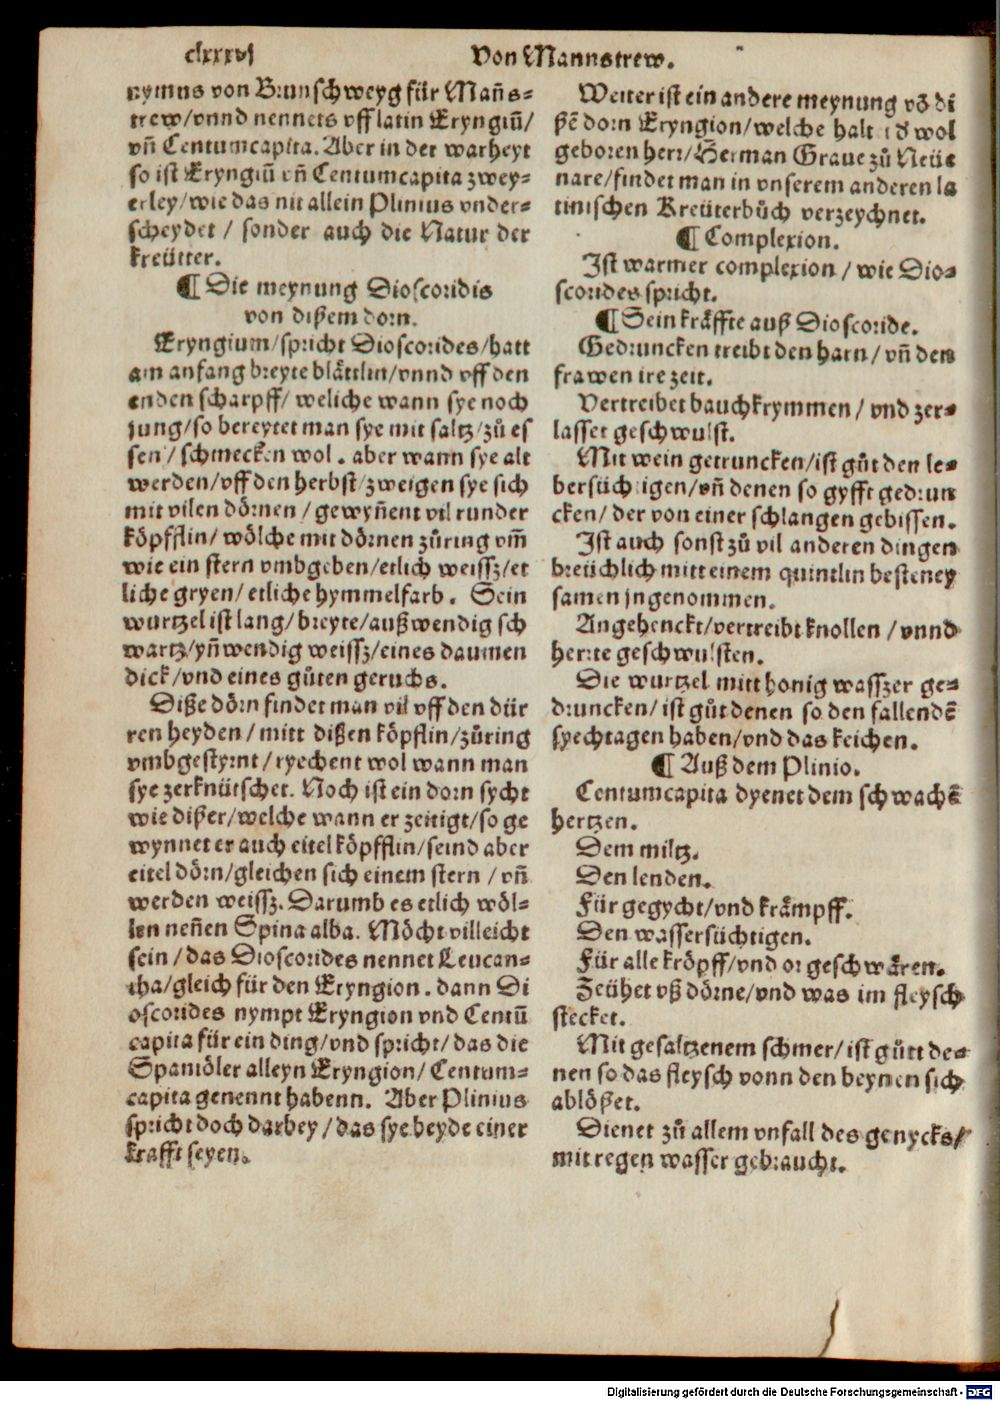 clxxxvj
Von Mannstrew.
nymus von Brunschweyg für Mañs⸗
trew/vnnd nennets vff latin Eryngiū/
vñ Centumcapita. Aber in der warheyt
so ist Eryngiū vñ Centumcapita zwey⸗
erley/wie das nit allein Plinius vnder⸗
scheydet / sonder auch die Natur der
kreütter.
¶ Die meynung Dioscoridis
von dißem dorn.
Eryngium/spricht Dioscorides/hatt
am anfang breyte blättlin/vnnd vff den
enden scharpff/ weliche wann sye noch
jung/so bereytet man sye mit saltz/zů es
sen / schmecken wol. aber wann sye alt
werden/vff den herbst/zweigen sye sich
mit vilen dörnen / gewyñent vil runder
köpfflin/ wölche mit dörnen zůring vm̄
wie ein stern vmbgeben/etlich weissz/et
liche gryen/ etliche hymmelfarb. Sein
wurtzel ist lang/breyte/außwendig sch
wartz/yñwendig weissz/eines daumen
dick/vnd eines gůten geruchs.
Diße dörn findet man vil vff den dür
ren heyden / mitt dißen köpflin/zůring
vmbgestyrnt / ryechent wol wann man
sye zerknütschet. Noch ist ein dorn sycht
wie dißer/welche wann er zeitigt/so ge
wynnet er auch eitel köpfflin/seind aber
eitel dörn/gleichen sich einem stern / vñ
werden weissz. Darumb es etlich wöl⸗
len neñen Spina alba. Möcht villeicht
sein / das Dioscorides nennet Leucan⸗
tha/gleich für den Eryngion. dann Di
oscorides nympt Eryngion vnd Centū
capita für ein ding/vnd spricht/ das die
Spaniöler alleyn Eryngion/ Centum⸗
capita genennt habenn. Aber Plinius
spricht doch darbey / das sye beyde einer
krafft seyen.
Weiter ist ein andere meynung vō di
ßē dorn Eryngion/welche halt d wol
geboren herr/Herman Graue zů Neüe
nare/findet man in vnserem anderen la
tinischen Kreüterbůch verzeychnet.
¶ Complexion.
Ist warmer complexion / wie Dio⸗
scorides spricht.
¶ Sein kräffte auß Dioscoride.
Gedruncken treibt den harn / vñ den
frawen ire zeit.
Vertreibet bauchkrymmen / vnd zer⸗
lasset geschwulst.
Mit wein getruncken/ist gůt den le⸗
bersüchtigen/vñ denen so gyfft gedrun
cken/ der von einer schlangen gebissen.
Ist auch sonst zů vil anderen dingen
breüchlich mitt einem quintlin besteney
samen jngenommen.
Angehenckt/vertreibt knollen / vnnd
herrte geschwulsten.
Die wurtzel mitt honig wassser ge⸗
druncken/ ist gůt denen so den fallendē
syechtagen haben/vnd das keichen.
¶ Auß dem Plinio.
Centumcapita dyenet dem schwachē
hertzen.
Dem miltz.
Den lenden.
Für gegycht/vnd krämpff.
Den wassersüchtigen.
Für alle kröpff/vnd orgeschwären.
Zeühet vß dörne/vnd was im fleysch
stecket.
Mit gesaltzenem schmer/ist gůtt de⸗
nen so das fleysch vonn den beynen sich
ablößet.
Dienet zů allem vnfall des genycks/
mit regen wasser gebraucht.
Digitalisierung gefördert durch die Deutsche Forschungsgemeinschaft - DFG